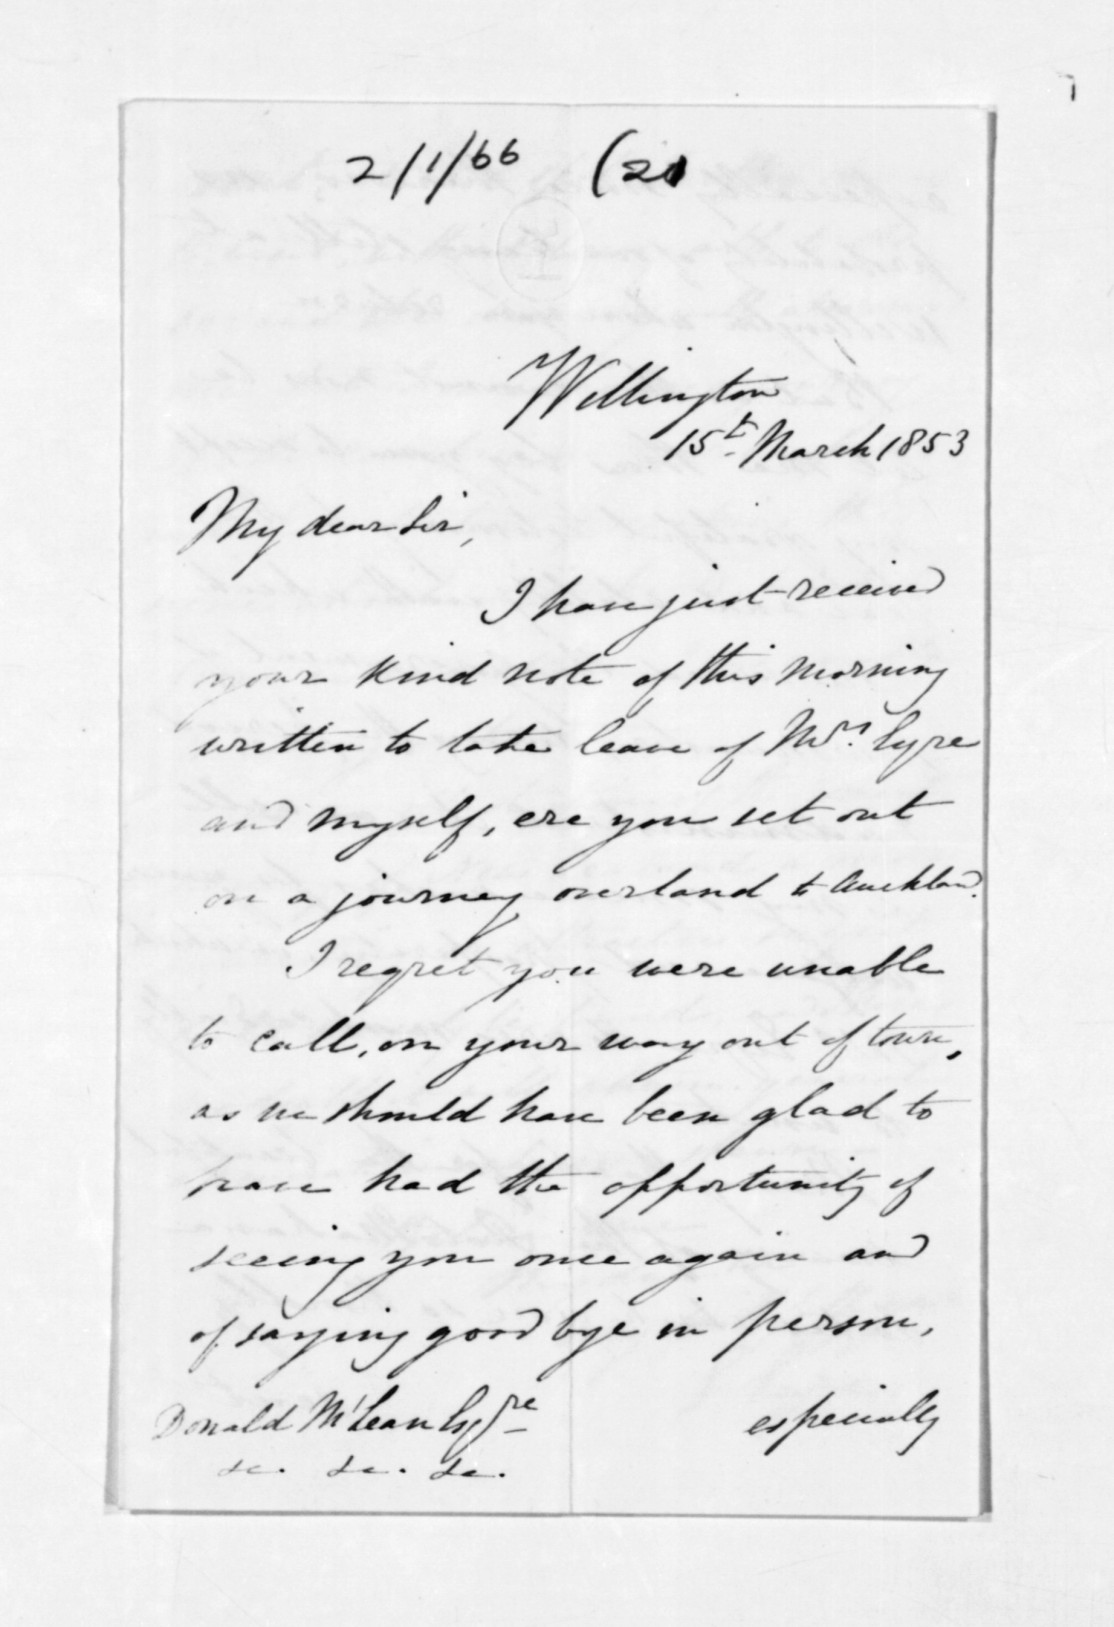 2/1/66 (20
Wellington
15th March 1853
My dear Sir,
I have just received
your kind note of this morning
written to take leave of Mrs. Eyre
and myself, ere you set out
on a journey overland to Auckland.
I regret you were unable
to call, on your way out of town,
as we should have been glad to
have had the opportunity of
seeing you once again and
of saying good bye in person,
especially
Donald McLean Esqre
&c. &c. &c.